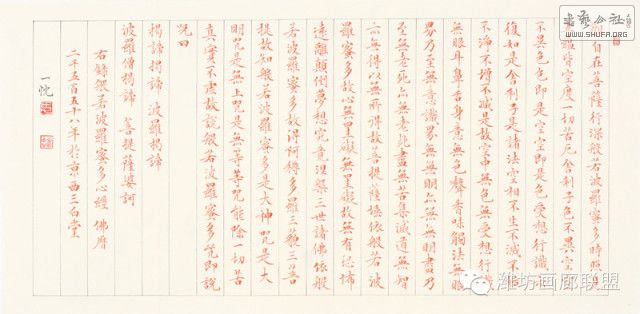 觀自在菩薩行深般若波羅蜜多時照見
五蘊皆空度一切苦厄舍利子色不異空空
不異色色即是空空即是色受想行識亦
復如是舍利子是諸法空相不生不滅不垢
不淨不增不減是故空中無色無受想行識
無眼耳鼻舌身意無色聲香味觸法無眼
界乃至無意識界無無明亦無無明盡乃
至無老死亦無老死盡無苦集滅道無智
亦無得以無所得故菩提薩埵依般若波
羅蜜多故心無罣礙無罣礙故無有恐怖
遠離顛倒夢想究竟涅槃三世諸佛依般
若波羅蜜多故得阿耨多羅三藐三菩
提故知般若波羅蜜多是大神咒是大
明咒是無上咒是無等等咒能除一切苦
真實不虛故說般若波羅蜜多咒即說
咒曰
揭諦揭諦 波羅揭諦
波羅僧揭諦 菩提薩婆訶
右錄般若波羅蜜多心經 佛曆
二千五百五十八年於京西三白堂
一忱
书艺公社
WWW.SHUFA.ORG
潍坊画廊联盟